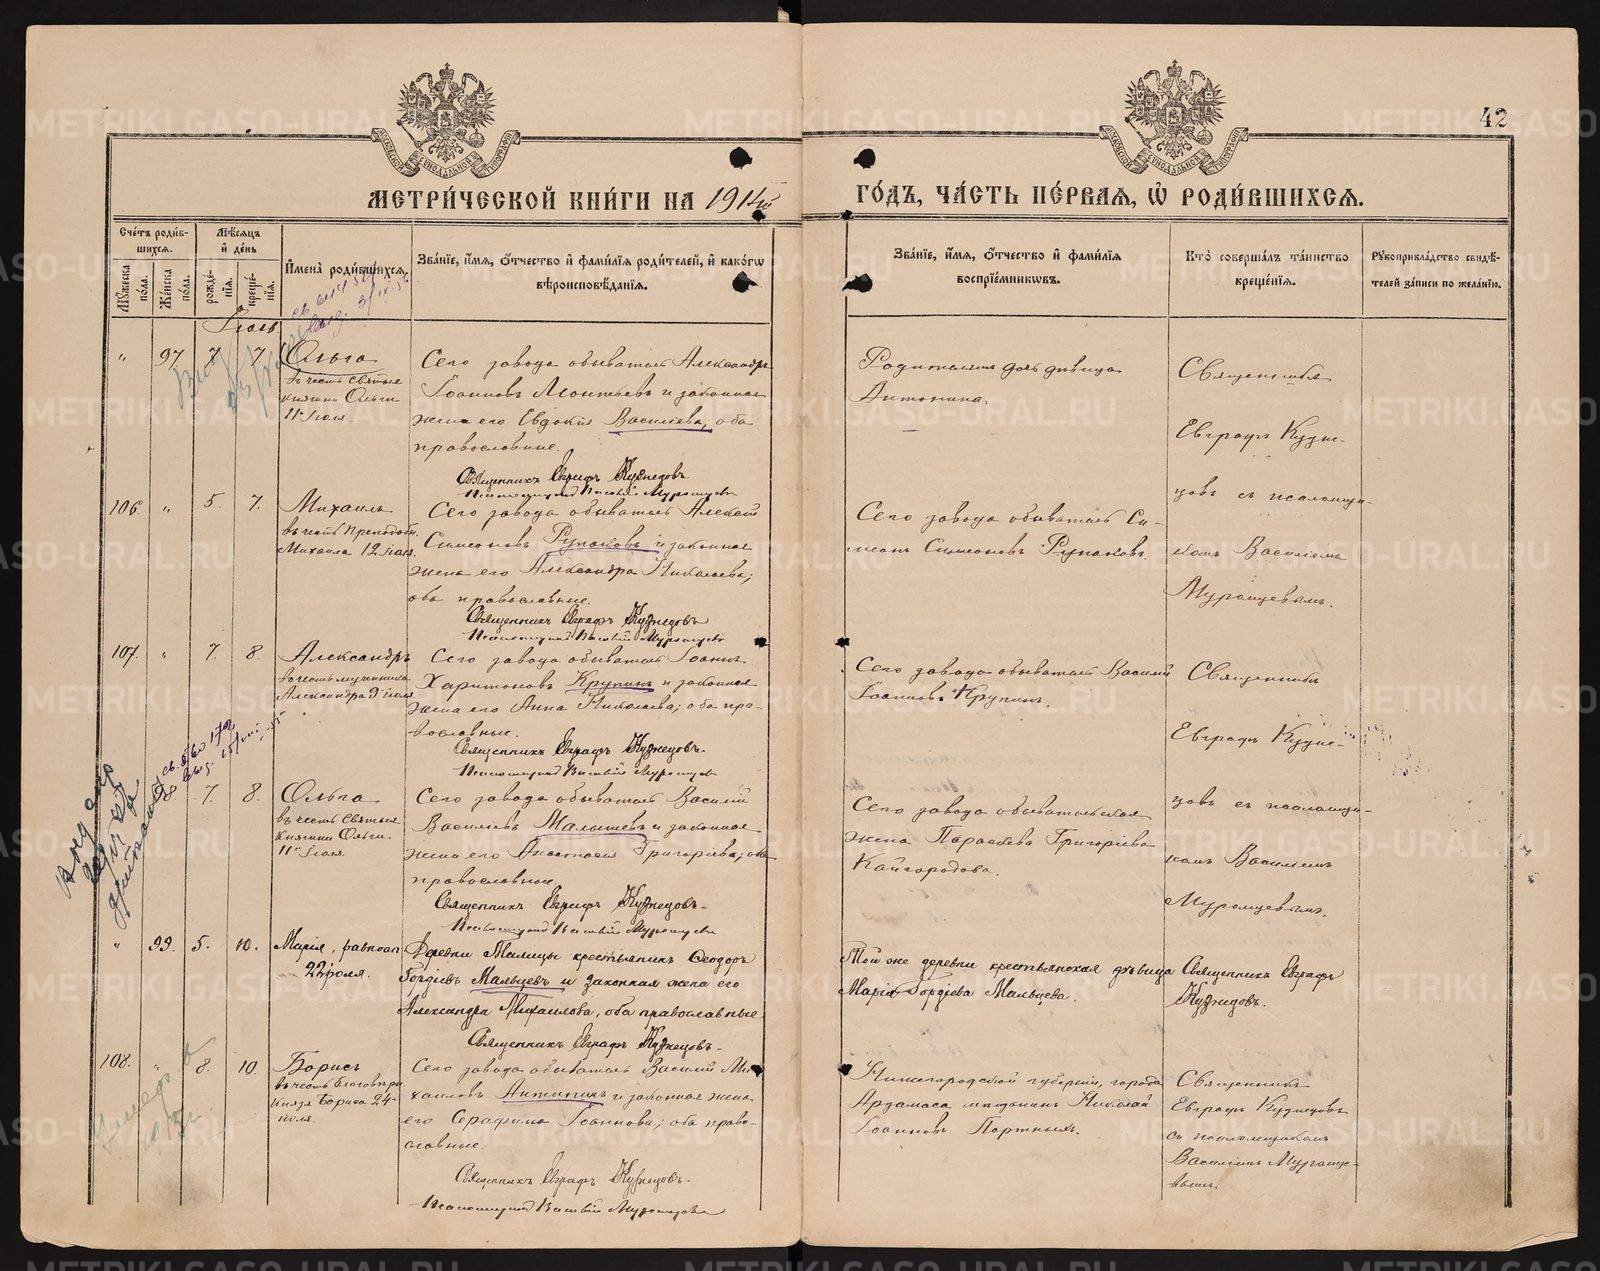 42
МЕТРИ́ЧЕСКОЙ КНИ́ГИ НА 1914й ГО́ДЪ, ЧА́СТЬ ПЕ́РВАЯ, Ѿ РОДИ́ВШИХСѦ.
Сче́тъ роди́в-
шихсѧ.
Мꙋжеска по́ла.
Же́нска по́ла.
Мѣ́сѧцъ и҆ де́нь
рожде́-
нїѧ.
креще́-
нїѧ.
И҆мена̀ роди́вшихсѧ.
Зва́нїе, и҆́мѧ, ѻ҆́тчество и҆ фами́лїѧ роди́телей, и҆ како́гѡ
вѣроисповѣ́данїѧ.
Зва́нїе, и҆́мѧ, ѻ҆́тчество и҆ фами́лїѧ
воспрїе́мникѡвъ.
Кто̀ соверша́лъ та́инство
креще́нїѧ.
Рꙋкоприкла́дство свидѣ́-
телей за́писи по жела́нїю.
Іюль.
" 97 7 7 Ольга
въ честь святыя
княгини Ольги
11 Іюля.
Сего завода обыватель Александръ
Іоанновъ Леонтьевъ и законная
жена его Евдокія Васильева, оба
православные.
Священникъ Евграфъ Кузнецовъ
Псаломщикъ Василій Муромцевъ
Родителей дочь дѣвица
Антонина.
Священникъ
Евграфъ Кузне-
цовъ съ псаломщи-
комъ Василіемъ
Муромцевымъ.
106. " 5. 7. Михаилъ
въ честь Преподобн.
Михаила 12 Іюля.
Сего завода обыватель Алексѣй
Симеоновъ Рупаковъ и законная
жена его Александра Николаева;
оба православные.
Священникъ Евграфъ Кузнецовъ
Псаломщикъ Василій Муромцевъ
Сего завода обыватель Си-
меонъ Симеоновъ Рупаковъ.
107. " 7. 8. Александръ
въ честь мученика
Александра 9 Іюля.
Сего завода обыватель Іоаннъ
Харитоновъ Крупинъ и законная
жена его Анна Николаева; оба пра-
вославные.
Священникъ Евграфъ Кузнецовъ.
Псаломщикъ Василій Муромцевъ
Сего завода обыватель Василій
Іоанновъ Крупинъ.
Священникъ
Евграфъ Кузне-
цовъ съ псаломщи-
комъ Василіемъ
Муромцевымъ.
98. 7. 8. Ольга
въ честь Святыя
Княгини Ольги
11 Іюля.
Сего завода обыватель Василій
Василіевъ Малышевъ и законная
жена его Анастасія Григоріева; оба
православные.
Священникъ Евграфъ Кузнецовъ.
Псаломщикъ Василій Муромцевъ
Сего завода обывательская
жена Параскева Григоріева
Кайгородова.
" 99. 5. 10. Марія, равноап.
22 іюля.
Деревни Малицы крестьянинъ Ѳеодоръ
Гордіевъ Мальцевъ и законная жена его
Александра Михаилова, оба православные.
Священникъ Евграфъ Кузнецовъ.
Той же деревни крестьянская дѣвица
Марія Гордіева Мальцева.
Священникъ Евграфъ
Кузнецовъ.
108. " 8. 10. Борисъ
въ честь благовѣрн.
Князя Бориса 24
іюля.
Сего завода обыватель Василій Ми-
хаиловъ Антипинъ и законная жена
его Серафима Іоаннова; оба право-
славные.
Священникъ Евграфъ Кузнецовъ.
Псаломщикъ Василій Муромцевъ
Нижегородской губерніи, города
Ардамаса мѣщанинъ Николай
Іоанновъ Портныхъ.
Священникъ
Евграфъ Кузнецовъ
съ псаломщикомъ
Василіемъ Муромце-
вымъ.
METRIKI.GASO-URAL.RU